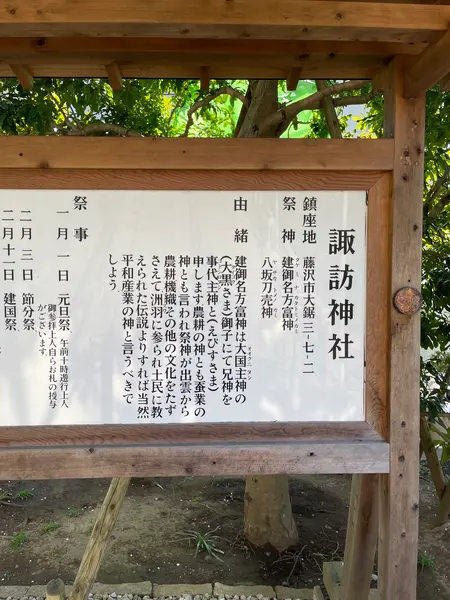 諏訪神社
鎮座地　藤沢市大鋸三-七-二
祭神　建御名方富神
タケミナカタトミノカミ
八坂刀売神
ヤサカトメノカミ
由緒　建御名方富神は大国主神の
(大黒さま)御子にて兄神を
事代主神と(えびすさま)
申します農耕の神とも蚕業の
神とも言われ祭神が出雲から
農耕機織その他の文化をたず
さえて洲羽に参られ土民に教
えられた伝説よりすれば当然
平和産業の神と言うべきで
しょう
祭事
一月一日　元旦祭、午前十時遊行上人
御参拝上人自らお札の授与
がございます。
二月三日　節分祭
二月十一日　建国祭